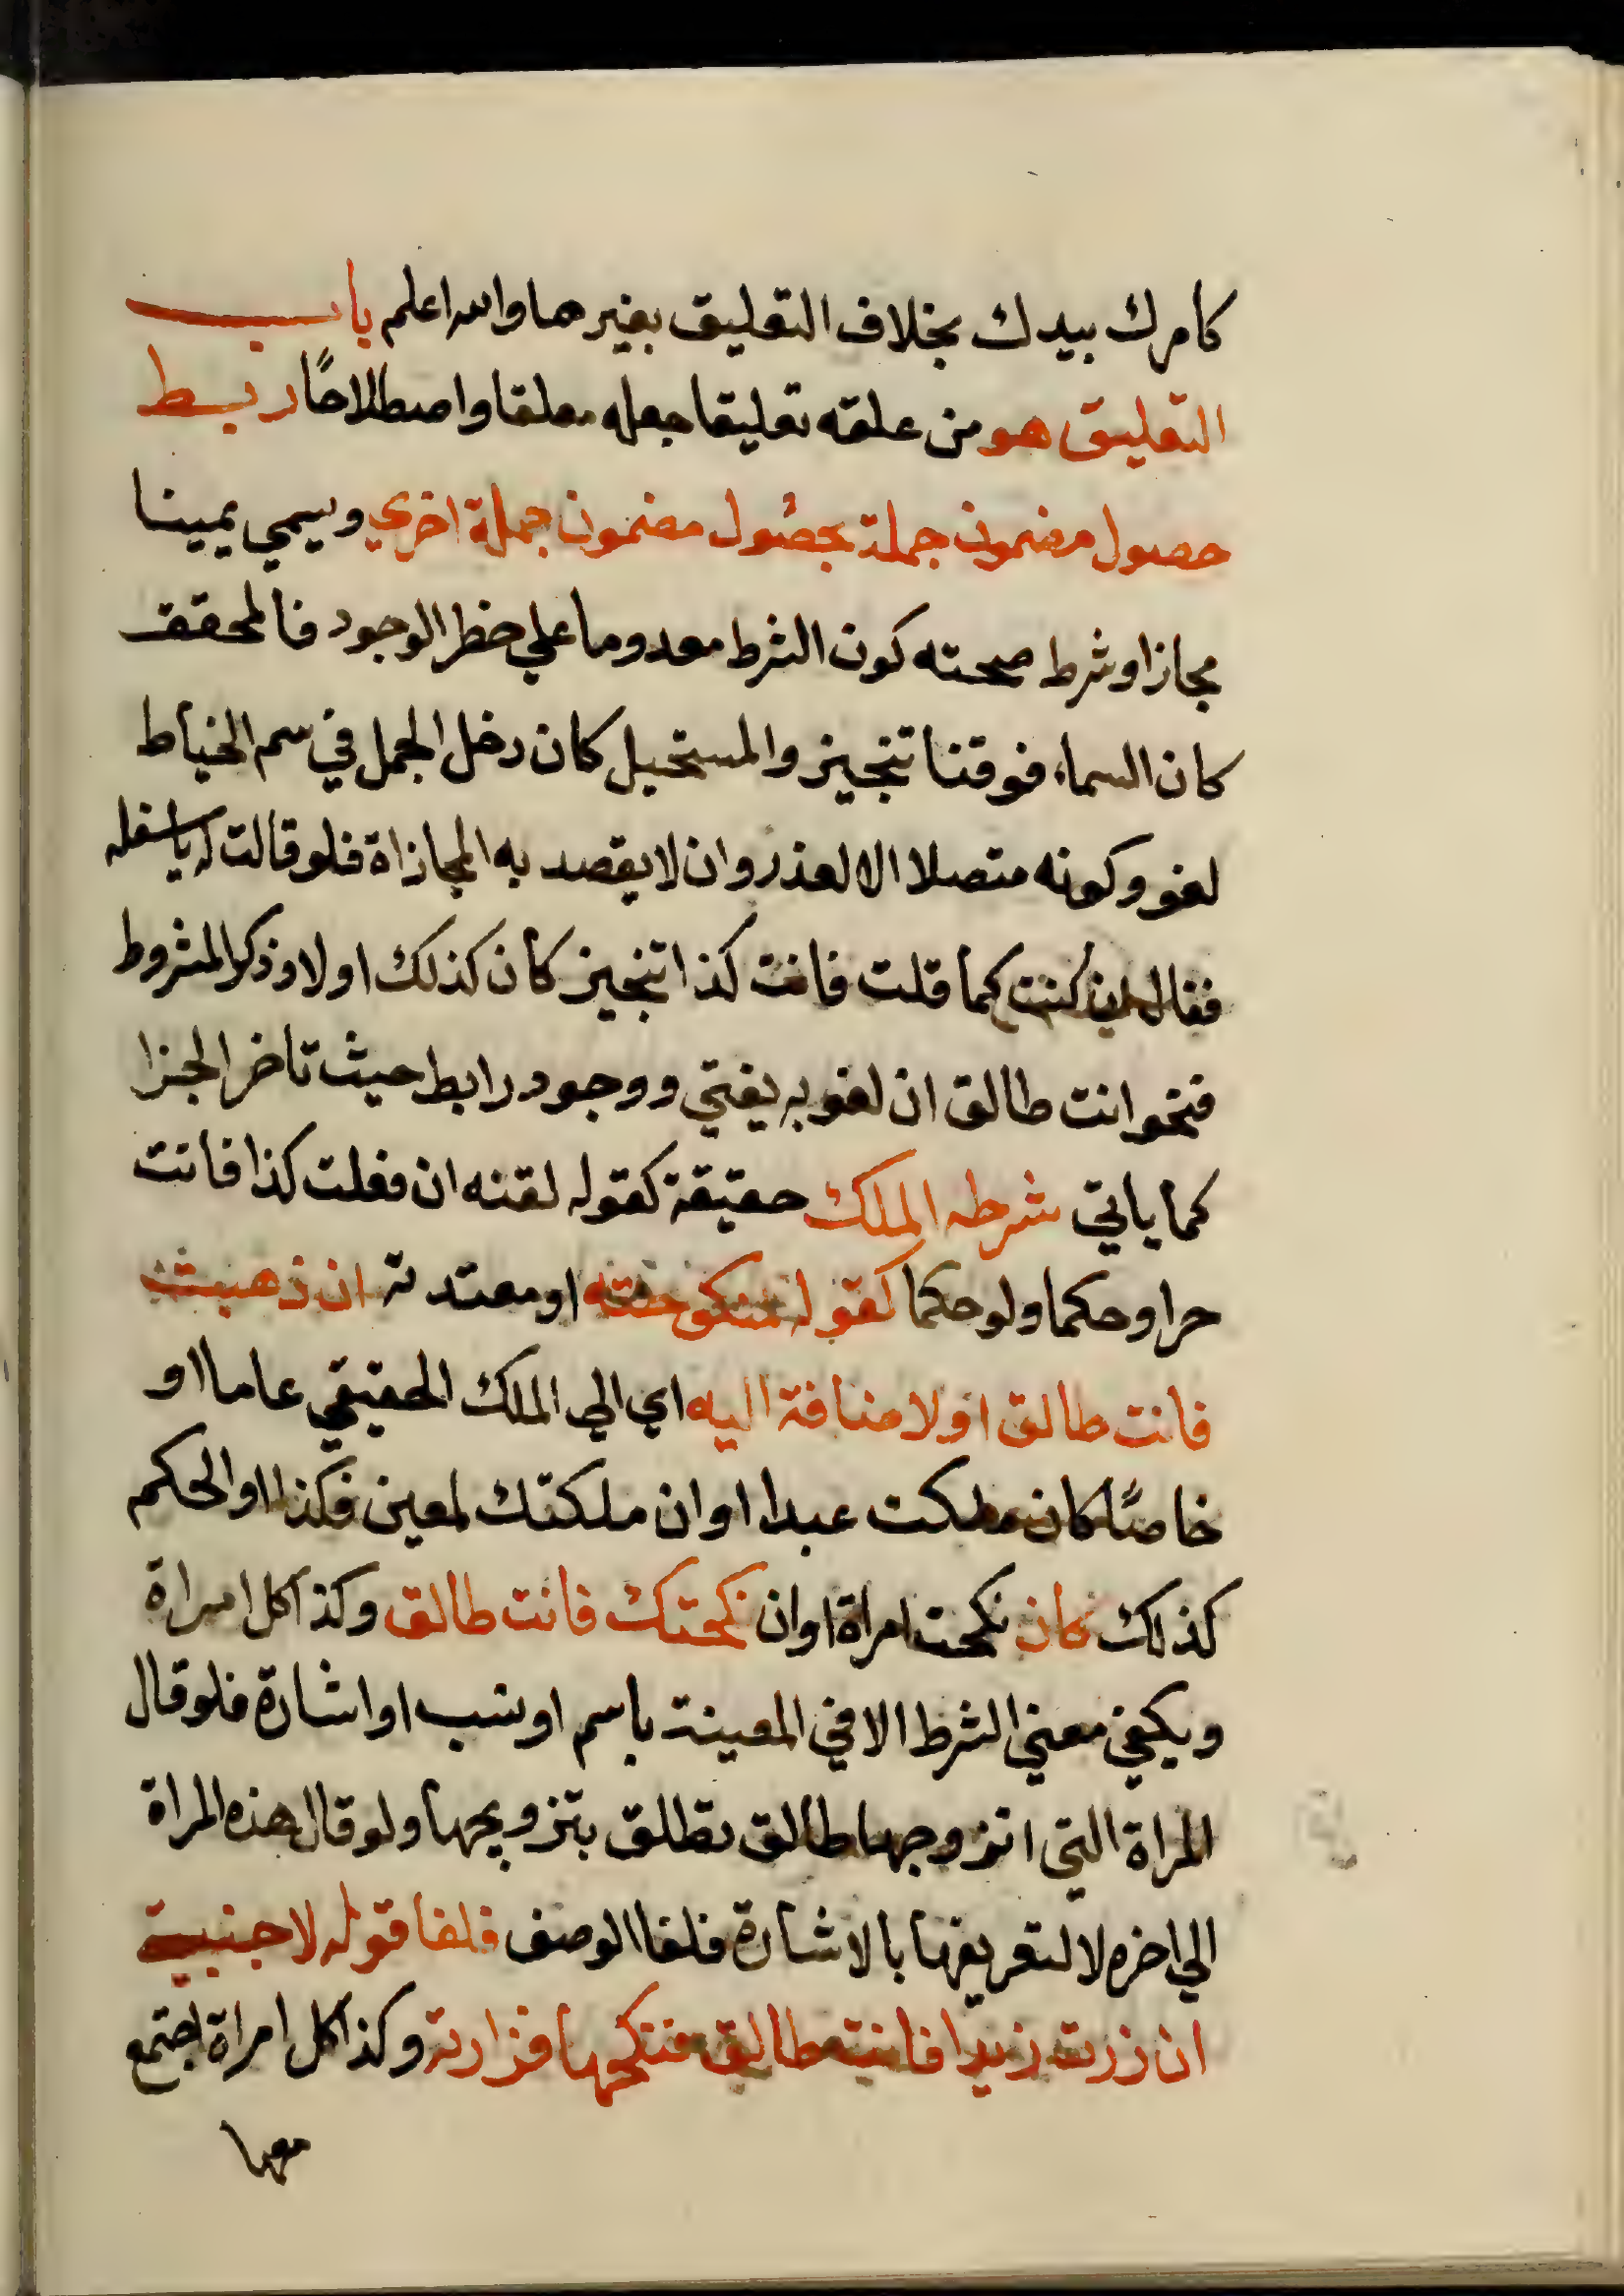 كامرك بيدك بخلاف التعليق بغيرهما والله اعلم باب
التعليق هو من علقه تعليقا جعله معلقا واصطلاحًا ربط
حصول مضمون جملة بحصول مضمون جملة اخري ويسمي يمينا
مجازا وشرط صحته كون الشرط معدوما علي خطر الوجود فالمحقق
كان السماء فوقنا تنجيز والمستحيل كان دخل الجمل في سم الخياط
لغو وكونه متصلا الا لعذر وان لا يقصد به المجازاة فلو قالت له يا سفله
فقال ان كنت كما قلت فانت كذا تنجيز كان كذلك اولا وذكر المشروط
فنحو انت طالق ان لغو به يفتي ووجود رابط حيث تاخر الجزا
كما ياتي شرطه الملك حقيقة كقوله لقنه ان فعلت كذا فانت
حر او حكما ولو حكما كقوله لمنكوحته او معتدته ان ذهبت
فانت طالق او لاضافة اليه اي الي الملك الحقيقي عاما او
خاصًا كان ملكت عبدا او ان ملكتك لمعين فكذا او الحكم
كذلك كان نكحت امراة او ان نكحتك فانت طالق وكذا كل امراة
ويكفي معني الشرط الا في المعينة باسم او نسب او اشارة فلو قال
المراة التي اتزوجها طالق تطلق بتزويجها ولو قال هذه المراة
الي اخره لا لتعريفها بالاشارة فلغا الوصف فلغا قوله لاجنبية
ان زرت زيدا فانت طالق فنكحها فزارته وكذا كل امراة اجتمع
معها